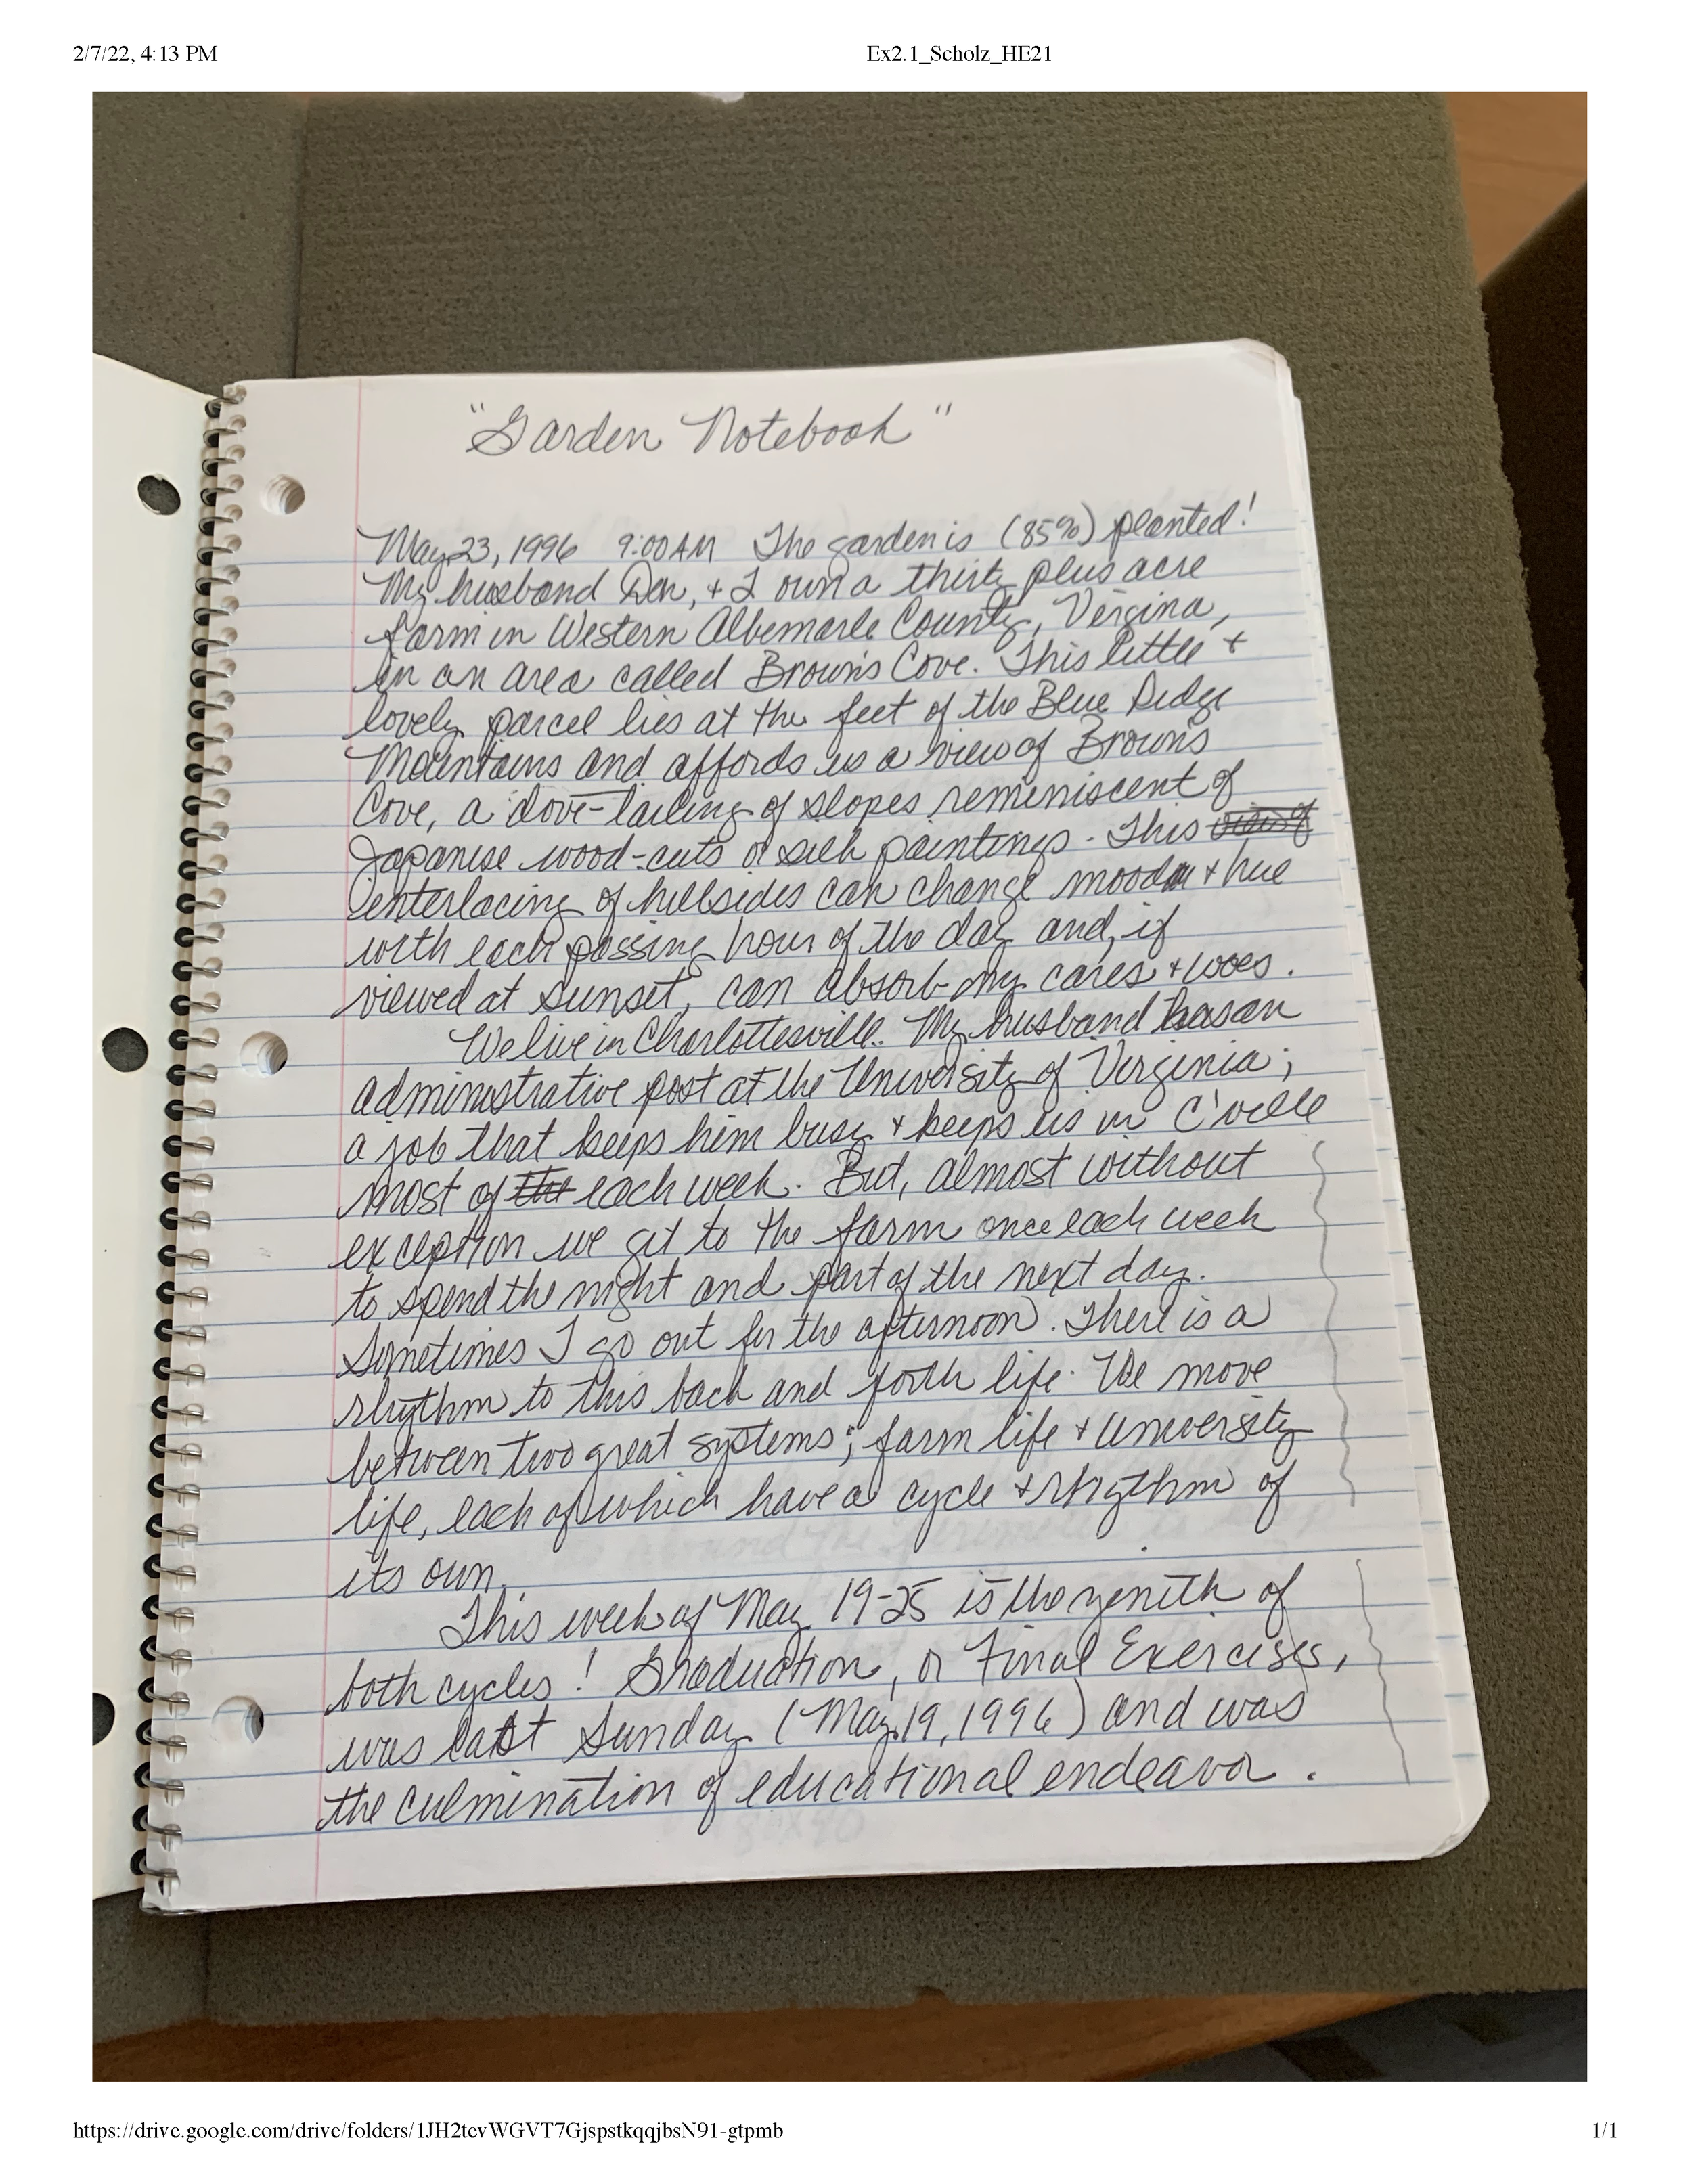 2/7/22, 4:13 PM Ex2.1_Scholz_HE21
"Garden Notebook"
May 23, 1996 9:00 AM The garden is (85%) planted!
My husband Den, + I own a thirty plus acre
farm in Western Albemarle County, Virgina,
in an area called Brown's Cove. This little +
lovely parcel lies at the feet of the Blue Ridge
Mountains and affords us a view of Brown's
Cove, a dove-tailing of slopes reminiscent of
Japanese wood-cuts or silk paintings. This
interlacing of hillsides can change mood + hue
with each passing hour of the day and, if
viewed at sunset, can absorb my cares + woes.
We live in Charlottesville. My husband has an
administrative post at the University of Virginia;
a job that keeps him busy + keeps us in C'ville
most of the each week. But, almost without
exception we get to the farm once each week
to spend the night and part of the next day.
Sometimes I go out for the afternoon. There is a
rhythm to this back and forth life. We move
between two great systems; farm life + university
life, each of which have a cycle + rhythm of
its own.
This week of May 19-25 is the zenith of
both cycles! Graduation, or Final Exercises,
was last Sunday (May 19, 1996) and was
the culmination of educational endeavor.
https://drive.google.com/drive/folders/1JH2tevWGVT7GjspstkqqjbsN91-gtpmb 1/1